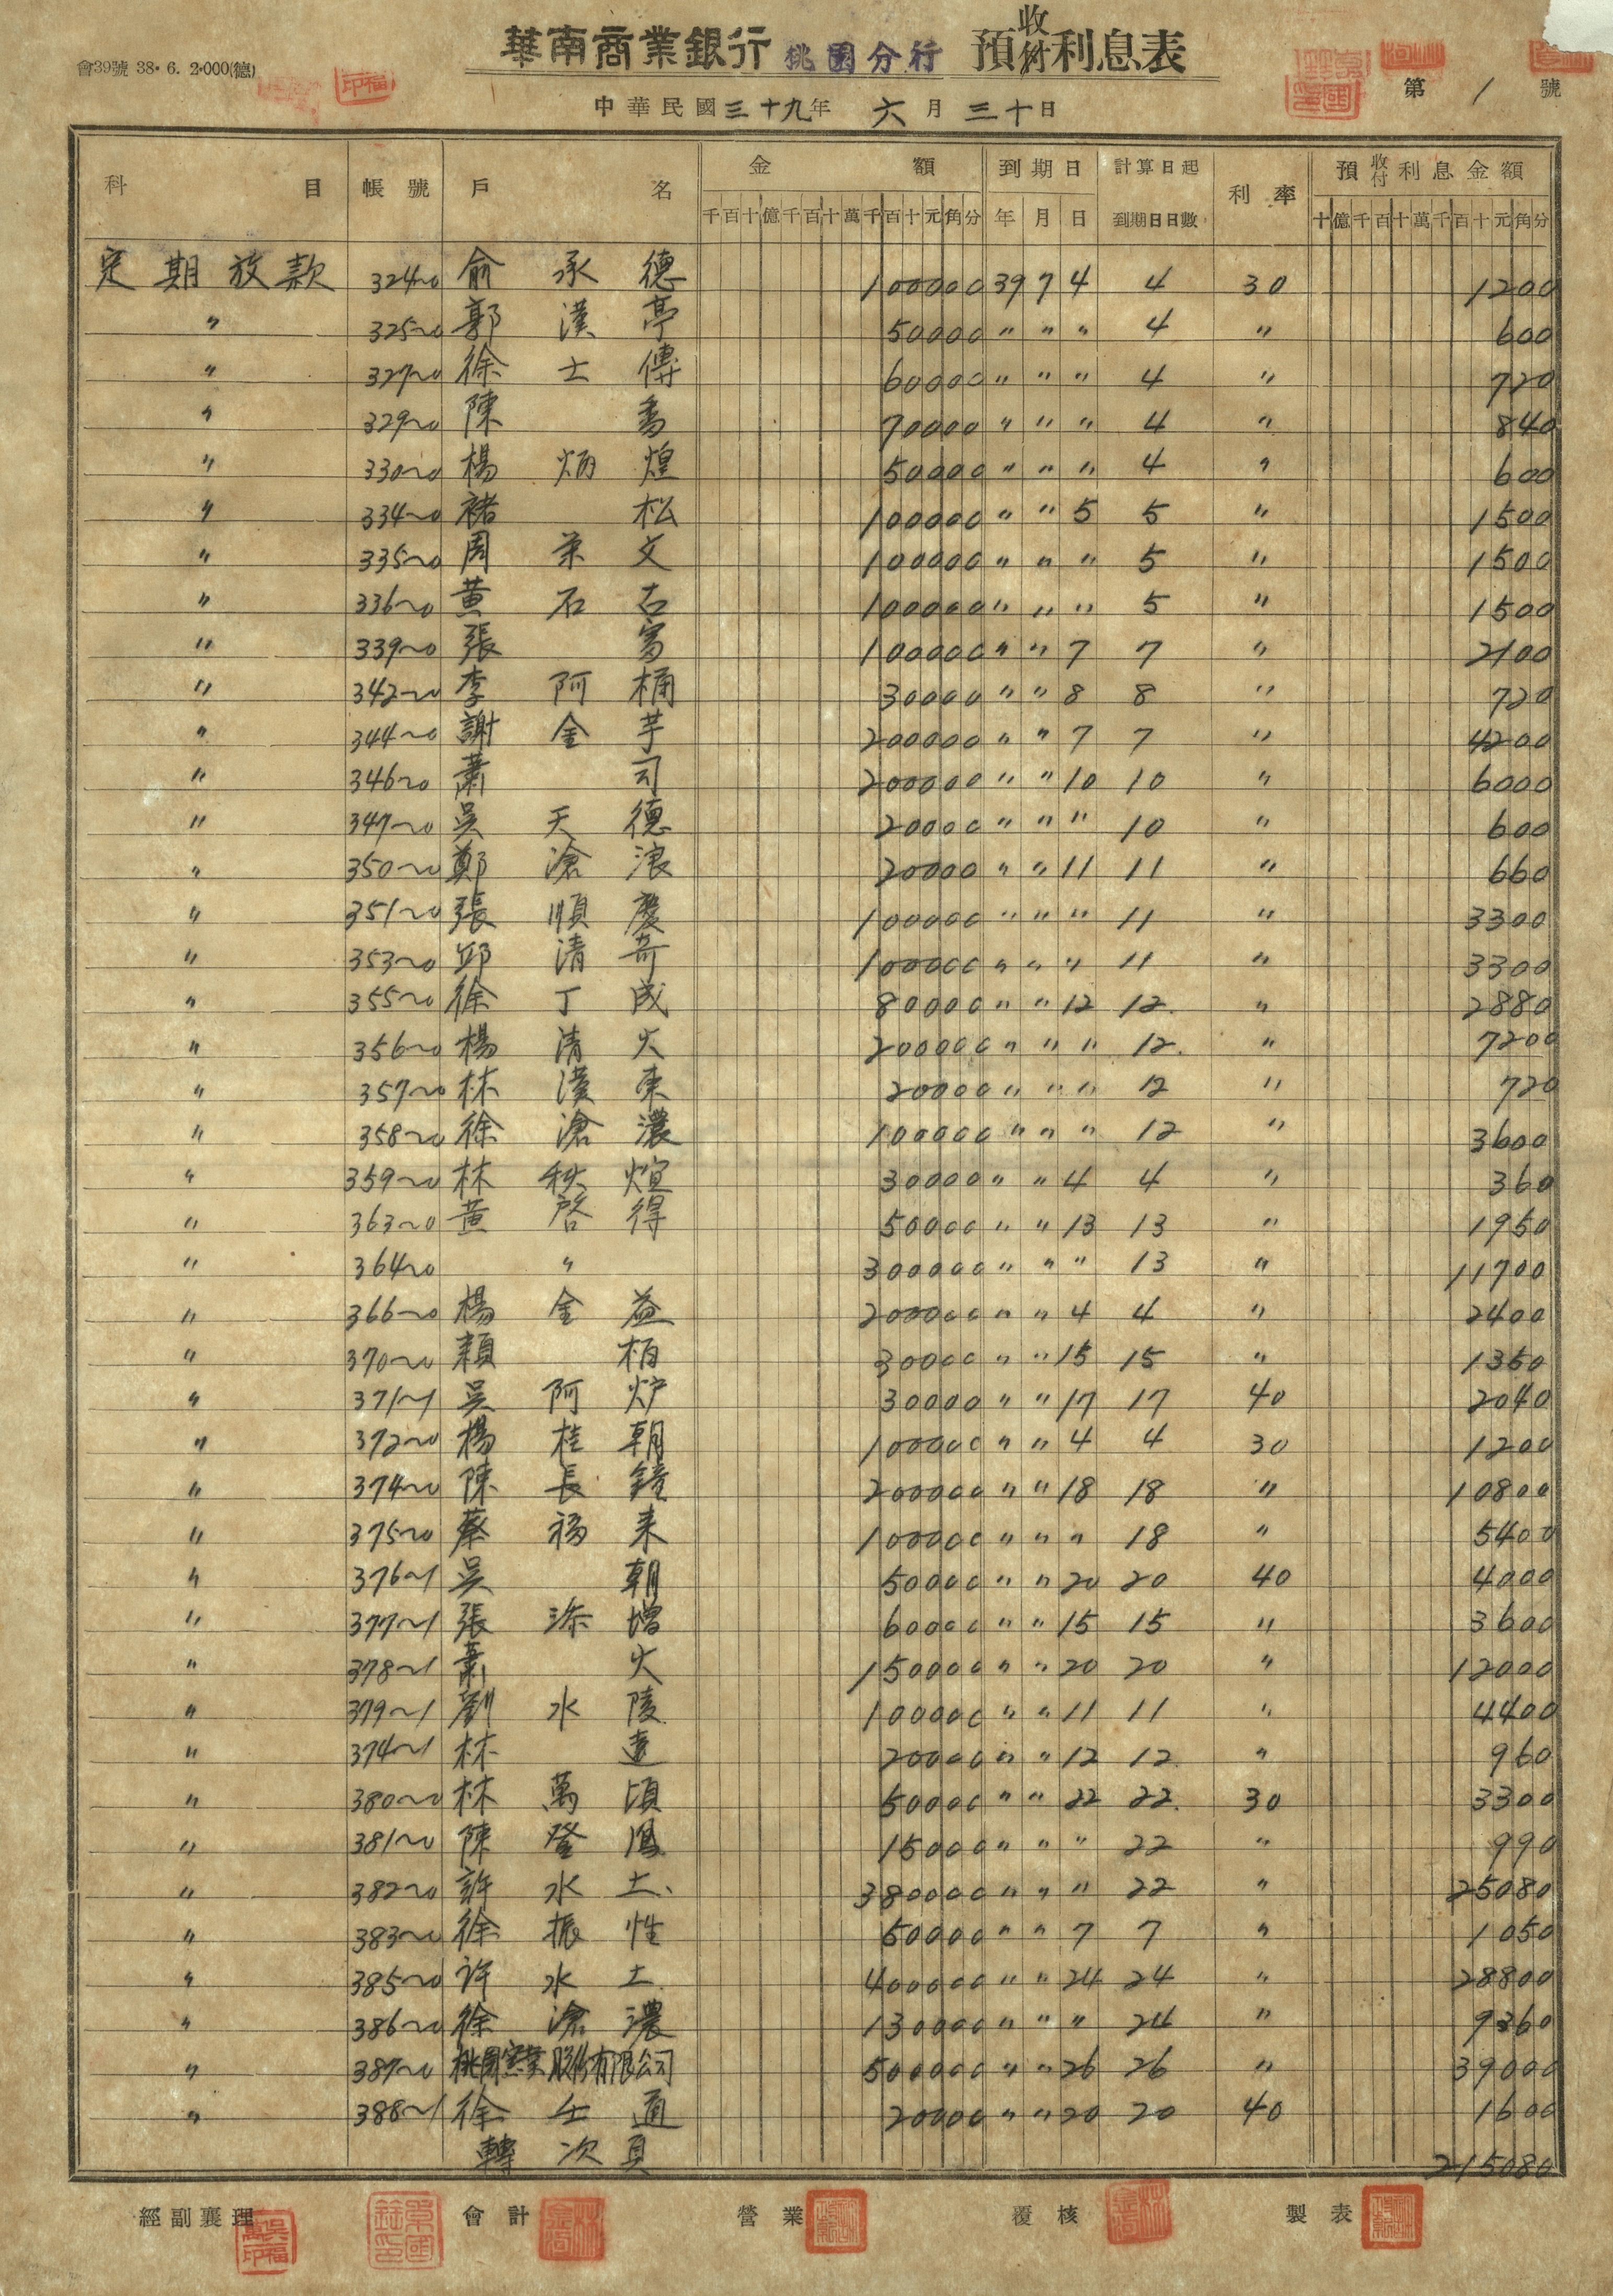 會39號 38·6.2·000(德)
華南商業銀行 桃園分行 預收付利息表
第 1 號
中華民國三十九年 六月三十日
科目 帳號 戶名 金額 到期日 計算日起到期日日數 利率 預收付利息金額
千百十億千百十萬千百十元角分 年 月 日 十億千百十萬千百十元角分
定期放款 324~0 俞承德 100000 39 7 4 4 30 1200
〃 325~0 郭漢亭 50000 〃 〃 〃 4 〃 600
〃 327~0 徐士傳 60000 〃 〃 〃 4 〃 720
〃 329~0 陳香 70000 〃 〃 〃 4 〃 840
〃 330~0 楊炳煌 50000 〃 〃 〃 4 〃 600
〃 334~0 褚松 100000 〃 〃 5 5 〃 1500
〃 335~0 周文 100000 〃 〃 〃 5 〃 1500
〃 336~0 黃石古 100000 〃 〃 〃 5 〃 1500
〃 339~0 張富 100000 〃 〃 7 7 〃 2100
〃 342~0 李阿桶 30000 〃 〃 8 8 〃 720
〃 344~0 謝金芋 200000 〃 〃 7 7 〃 4200
〃 346~0 蕭司 200000 〃 〃 10 10 〃 6000
〃 347~0 吳天德 20000 〃 〃 〃 10 〃 600
〃 350~0 鄭滄浪 20000 〃 〃 11 11 〃 660
〃 351~0 張順慶 100000 〃 〃 〃 11 〃 3300
〃 353~0 邱清奇 100000 〃 〃 〃 11 〃 3300
〃 355~0 徐丁成 80000 〃 〃 12 12 〃 2880
〃 356~0 楊清火 200000 〃 〃 〃 12 〃 7200
〃 357~0 林漢東 20000 〃 〃 〃 12 〃 720
〃 358~0 徐滄濃 100000 〃 〃 〃 12 〃 3600
〃 359~0 林秋煊 30000 〃 〃 4 4 〃 360
〃 363~0 黃啓得 50000 〃 〃 13 13 〃 1950
〃 364~0 〃 300000 〃 〃 〃 13 〃 11700
〃 366~0 楊金益 200000 〃 〃 4 4 〃 2400
〃 370~0 賴栢 30000 〃 〃 15 15 〃 1350
〃 371~1 吳阿炉 30000 〃 〃 17 17 40 2040
〃 372~0 楊桂朝 100000 〃 〃 4 4 30 1200
〃 374~0 陳長鐘 200000 〃 〃 18 18 〃 10800
〃 375~0 蔡福来 100000 〃 〃 〃 18 〃 5400
〃 376~1 吳朝 50000 〃 〃 20 20 40 4000
〃 377~1 張添增 60000 〃 〃 15 15 〃 3600
〃 378~1 蕭火 150000 〃 〃 20 20 〃 12000
〃 379~1 劉水陵 100000 〃 〃 11 11 〃 4400
〃 374~1 林遠 20000 〃 〃 12 12 〃 960
〃 380~0 林萬頃 50000 〃 〃 22 22 30 3300
〃 381~0 陳登鳳 15000 〃 〃 〃 22 〃 990
〃 382~0 許水土 380000 〃 〃 〃 22 〃 25080
〃 383~0 徐振性 50000 〃 〃 7 7 〃 1050
〃 385~0 許水土 400000 〃 〃 24 24 〃 28800
〃 386~0 徐滄濃 130000 〃 〃 〃 24 〃 9360
〃 387~0 桃園窯業股份有限公司 500000 〃 〃 26 26 〃 39000
〃 388~1 徐士通 20000 〃 〃 20 20 40 1600
轉次頁 215080
經副襄理 會計 營業 覆核 製表